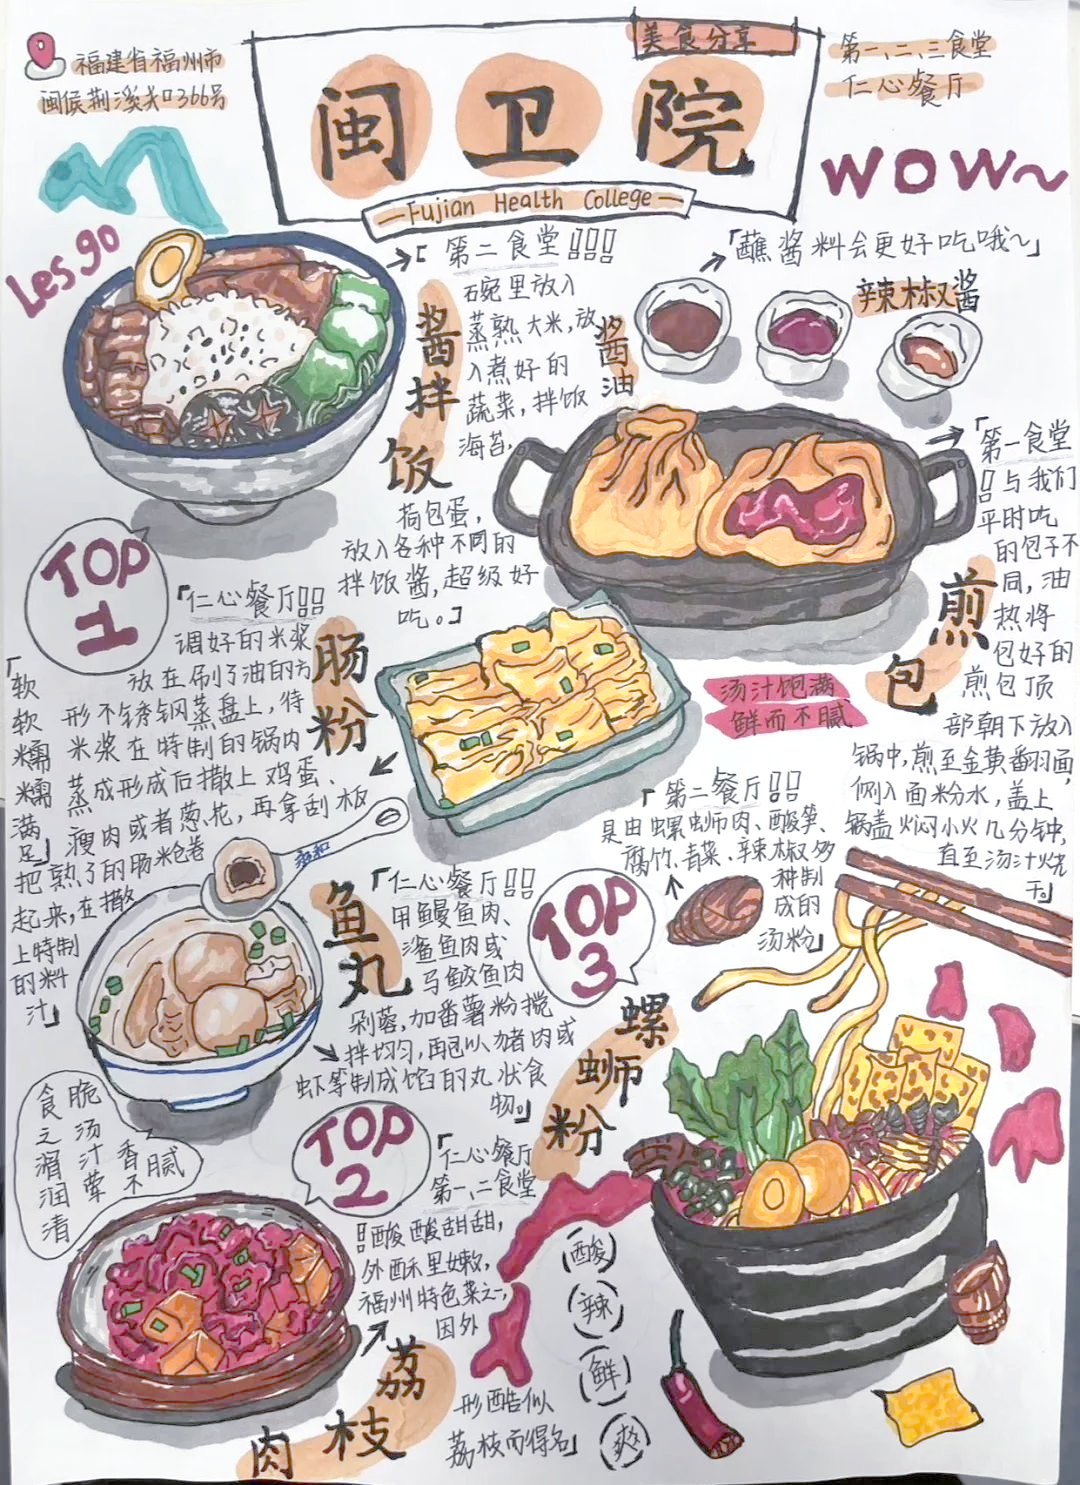 福建省福州市
闽侯荆溪关口366号
美食分享
闽卫院
Fujian Health College
第一、二、三食堂
仁心餐厅
wow~
Les go
「第二食堂!!!
碗里放入
蒸熟大米,放
入煮好的
蔬菜,拌饭
海苔,
荷包蛋,
放入各种不同的
拌饭酱,超级好
吃。」
酱拌饭
「蘸酱料会更好吃哦~」
酱油
辣椒酱
「第一食堂
!!与我们
平时吃
的包子不
同,油
热将
包好的
煎包顶
部朝下放入
锅中,煎至金黄翻面,
倒入面粉水,盖上
锅盖焖小火几分钟,
直至汤汁烧
干」
煎包
汤汁饱满
鲜而不腻
TOP
1
「仁心餐厅!!!
调好的米浆
放在刷了油的方
形不锈钢蒸盘上,待
米浆在特制的锅内
蒸成形成后撒上鸡蛋、
瘦肉或者葱花,再拿刮板
把熟了的肠粉卷
起来,在撒
上特制
的料
汁」
肠粉
「软软糯糯满足」
永和
「仁心餐厅!!
用鳗鱼肉、
鲨鱼肉或
马鲛鱼肉
剁蓉,加番薯粉搅
拌均匀,再包以猪肉或
虾等制成馅的丸状食
物。」
鱼丸
食之润滑清
脆汤汁荤香不腻
TOP
3
「第二餐厅!!
是由螺蛳肉、酸笋、
腐竹、青菜、辣椒多
种制
成的
汤粉」
螺蛳粉
酸
辣
鲜
爽
TOP
2
「仁心餐厅
第一、二食堂
!!酸酸甜甜,
外酥里嫩,
福州特色菜之一,
因外
形酷似
荔枝而得名」
荔枝肉